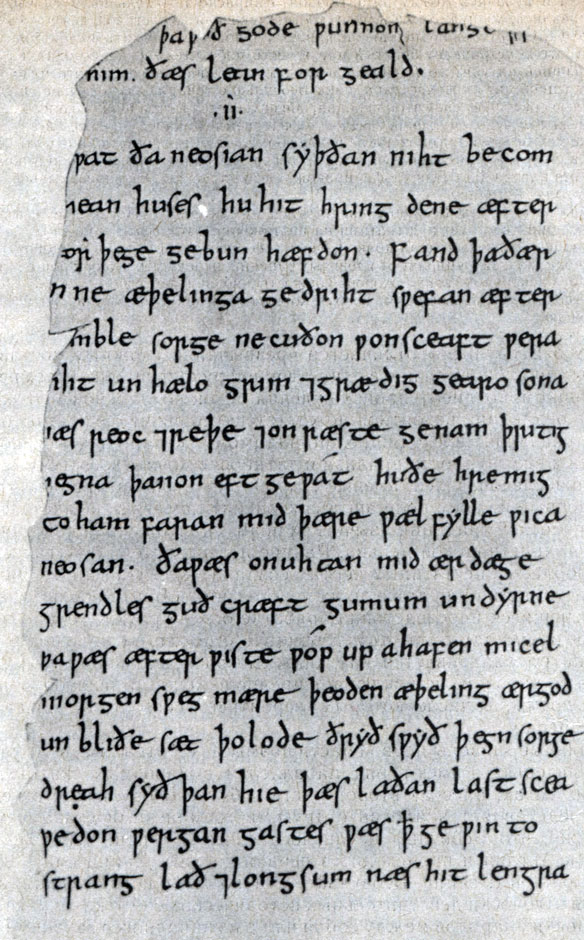 gode ƿunnon lange
him. ðæs lean for geald.
·ii·
ƿat ða neosian syþðan niht becom
hean huses. hu hit hring dene æfter
or þege gebun hæfdon. Fand þa ðær
nne æþelinga gedriht sƿefan æfter
mble sorge ne cuðon ƿonsceaft ƿera
iht un hælo grim ⁊grædig gearo sona
æs reoc ⁊reþe ⁊on ræste genam þritig
egna þanon eft geƿát huðe hremig
to ham faran mid þære ƿæl fylle ƿica
neosan. ðaƿæs onuhtan mid ærdæge
grendles guð cræft gumum undyrne
þaƿæs æfter ƿiste ƿóp up ahafen micel
morgen sƿeg mære þeoden æþeling ærgod
un bliðe sæt þolode ðryð sƿyð þegn sorge
dreah syð þan hie þæs laðan last scea
ƿedon ƿergan gastes ƿæs ꝥ geƿin to
strang lað ⁊longsum næs hit lengra